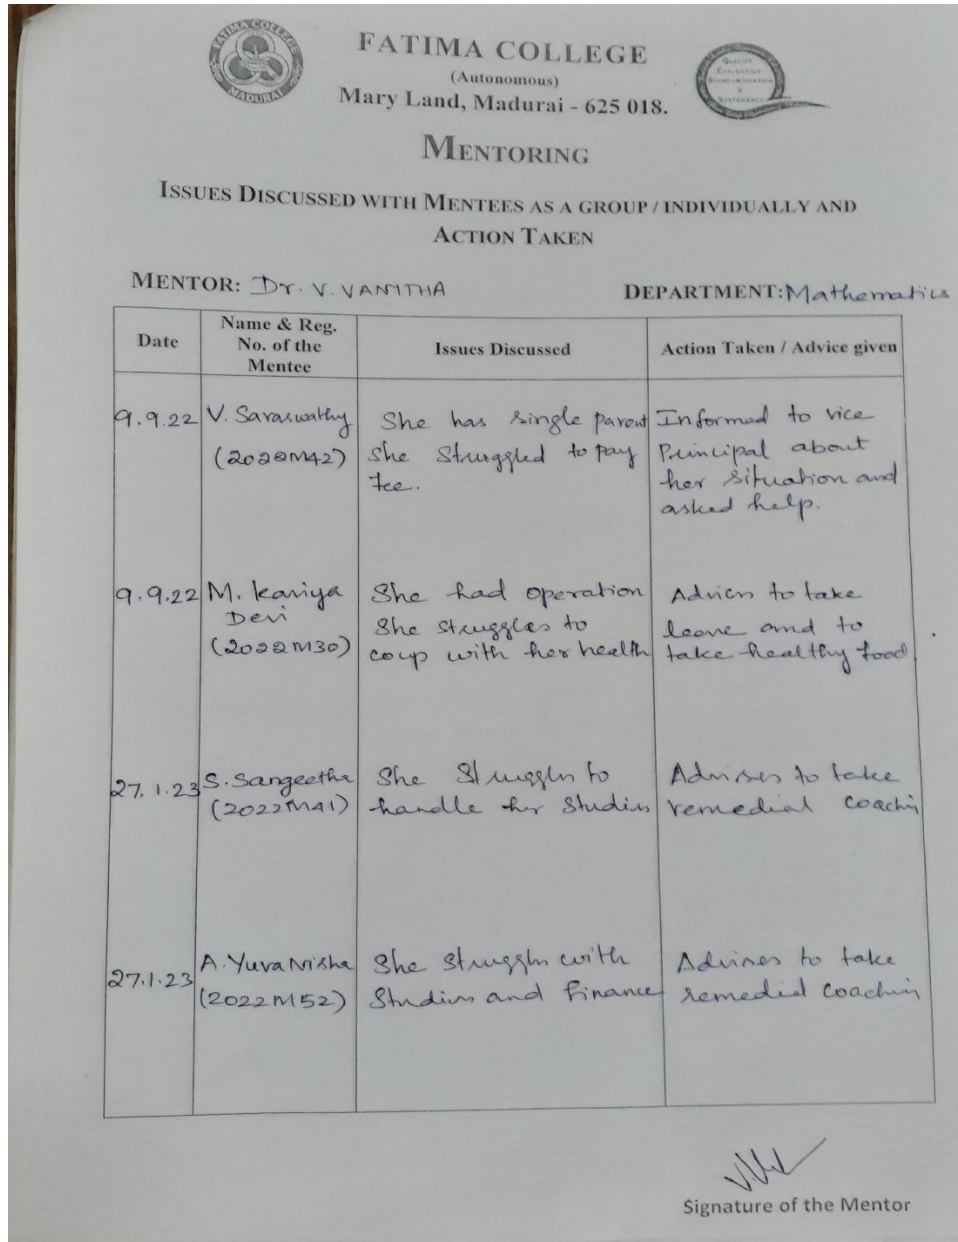 FATIMA COLLEGE
MADURAI
FATIMA COLLEGE
(Autonomous)
Mary Land, Madurai - 625 018.
QUALITY
EVALUATION
STANDARDIZATION
&
SUSTENANCE
MENTORING
ISSUES DISCUSSED WITH MENTEES AS A GROUP / INDIVIDUALLY AND
ACTION TAKEN
MENTOR: Dr. V. VANITHA
DEPARTMENT: Mathematics
Date
Name & Reg.
No. of the
Mentee
Issues Discussed
Action Taken / Advice given
9.9.22
V. Saraswathy
(2022M42)
She has single parent
She Struggled to pay
fee.
Informed to vice
Principal about
her situation and
asked help.
9.9.22
M. Kaviya
Devi
(2022M30)
She had operation
She struggles to
coup with her health
Advices to take
leave and to
take healthy food
27.1.23
S. Sangeetha
(2022M41)
She Struggles to
handle her Studies
Advises to take
remedial coachin
27.1.23
A. YuvaNisha
(2022M52)
She Struggles with
Studies and Finance
Advises to take
remedial coachin
Signature of the Mentor